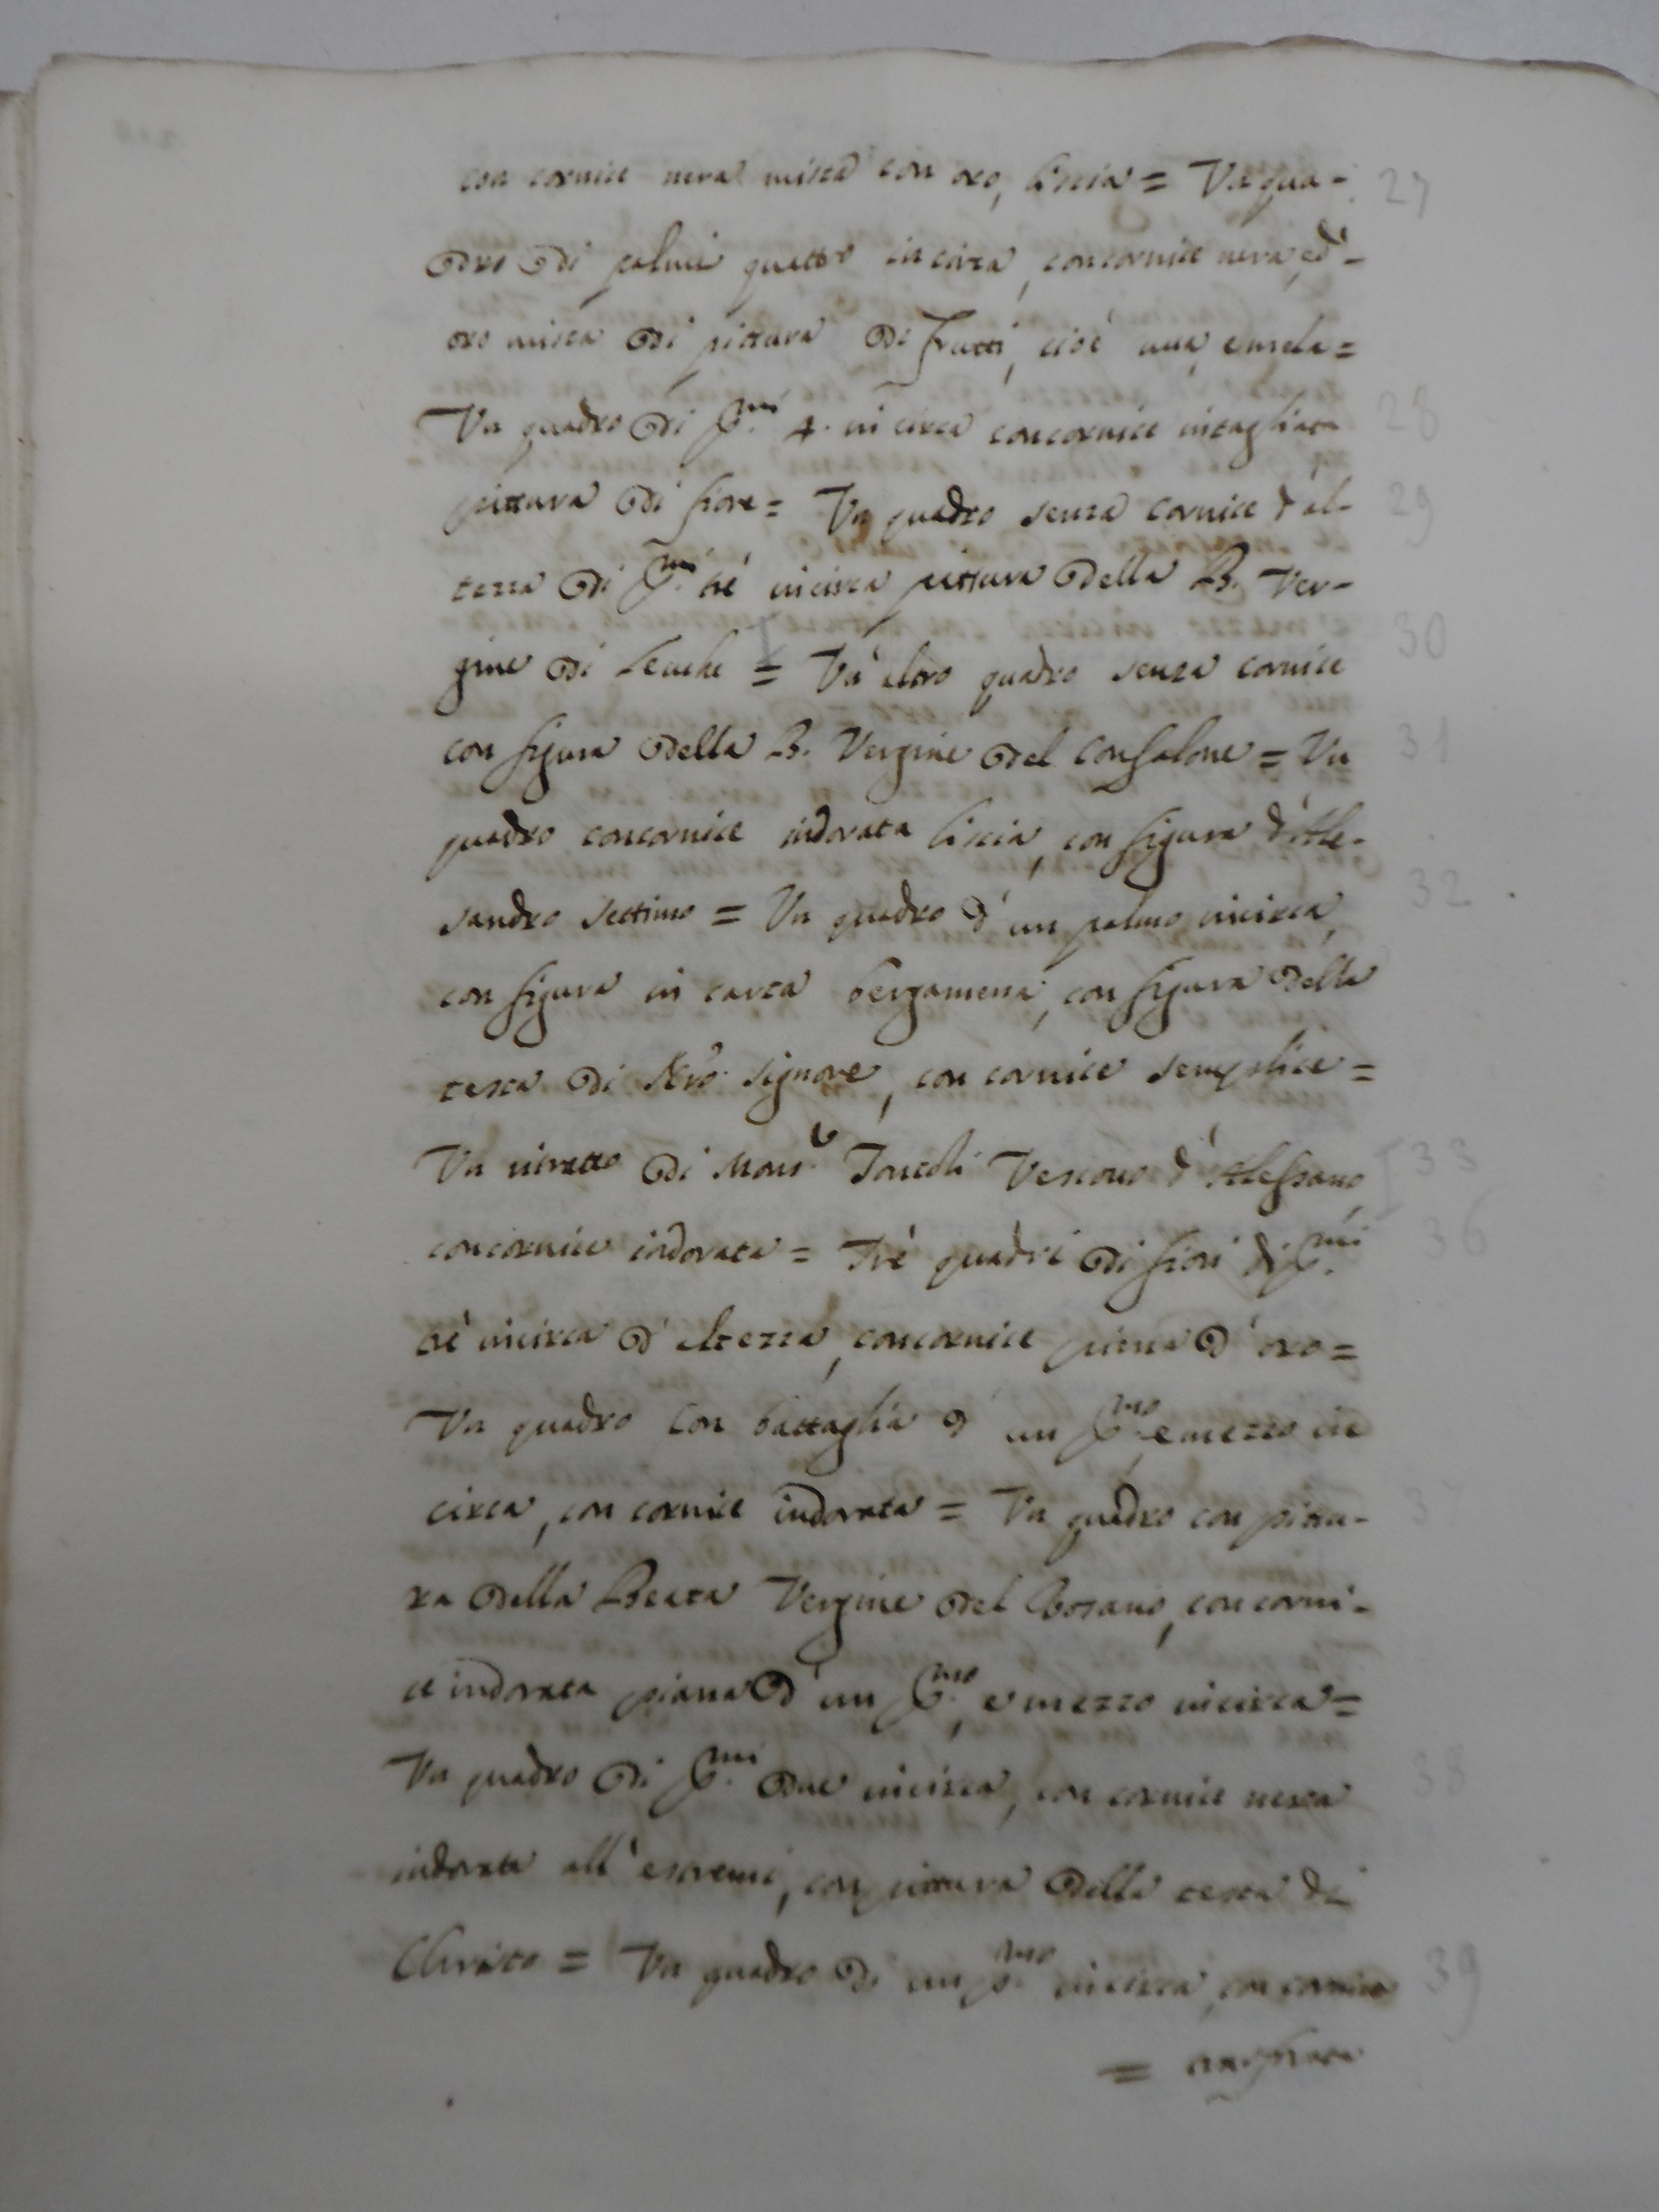 con cornice nera mista con oro, liscia = Un qua- 27
dro di palmi quattro in circa, con cornice nera, ed'-
oro mista di pittura di frutti, cioè uua, e mela =
Un quadro di p.mi 4. in circa con cornice intagliata 28
pittura di fiore = Un quadro senza cornice d'al- 29
tezza di p.mi trè incirca pittura della B. Ver-
gine di = Un altro quadro senza cornice 30
con figura della B. Vergine del Confalone = Un 31
quadro con cornice indorata liscia, con figura d'Ale-
sandro Settimo = Un quadro d'un palmo incirca, 32
con figura in carta bergamena, con figura della
testa di Nro. Signore, con cornice semplice =
Un ritratto di Mons.r Vescouo d'Alessano, 33
con cornice indorata = Trè quadri di fiori di p.mi 36
trè incirca d'altezza, con cornice piena d'oro =
Un quadro con battaglia d'un p.mo e mezzo in
circa, con cornice indorata = Un quadro con pittu- 37
ra della Beata Vergine del con corni-
ce indorata piana d'un p.mo, e mezzo incirca =
Un quadro di p.mi due incirca, con cornice nera 38
indorata all'estremi, con pittura della testa di
Christo = Un quadro di un p.mo incirca, con cornice 39
=